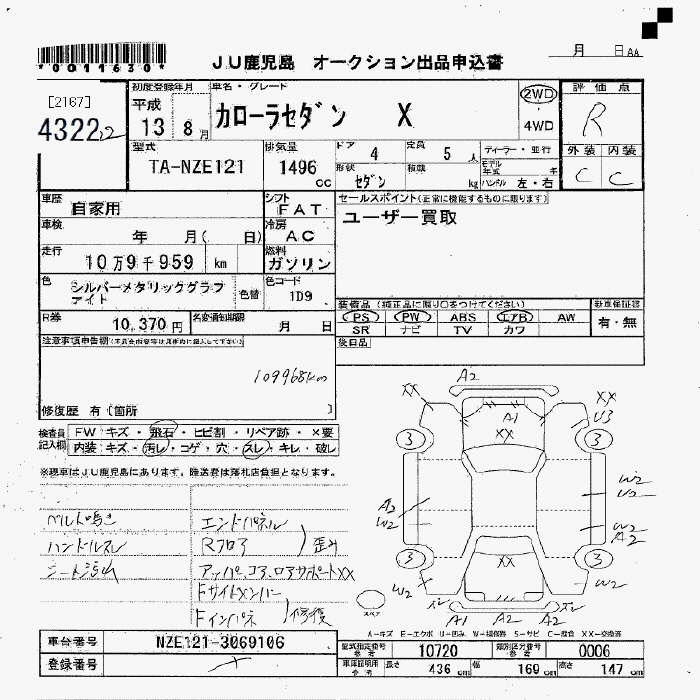 *0011630*
JU鹿児島 オークション出品申込書
月 日 AA
[2167]
4322
初度登録年月
平成
13 8月
車名・グレード
カローラセダン X
2WD
4WD
評価点
R
外装 内装
C C
型式
TA-NZE121
排気量
1496
cc
ドア 4
定員 5 人
形状 セダン
積載 kg
ディーラー・並行
モデル年式 年
ハンドル 左・右
車歴
自家用
シフト
FAT
車検
年 月( 日)
冷房
AC
走行
10万9千959 km
燃料
ガソリン
色
シルバーメタリックグラファイト
色替
色コード
1D9
R券
10,370円
名変通知期限
月 日
セールスポイント(正常に機能するものに限ります)
ユーザー買取
装備品(純正品に限り○をつけてください)
PS PW ABS エアB AW
SR ナビ TV カワ
後日品
新車保証書
有・無
注意事項申告欄
109968km
修復歴 有〔箇所 〕
検査員記入欄
FW キズ・飛石・ヒビ割・リペア跡・X要
内装 キズ・汚れ・コゲ・穴・スレ・キレ・破レ
※現車はJU鹿児島にあります。陸送費は落札店負担となります。
ベルト鳴き
ハンドルスレ
シート汚れ
エンドパネル
Rフロア
歪み
アッパ、コア、ロアサポートXX
Fサイドメンバー
Fインパネ
修復
A2
XX
A1
XX
XX
U3
3
3
A2
W2
W2
U2
W2
A2
3
3
XX
W2
W2
A1
A2
A2
スペア
A-キズ E-エクボ U-凹み W-補修跡 S-サビ C-腐食 XX-交換済
車台番号
NZE121-3069106
登録番号
型式指定番号 参考
10720
類別区分番号 参考
0006
車庫証明用 参考
長さ 436 cm
幅 169 cm
高さ 147 cm